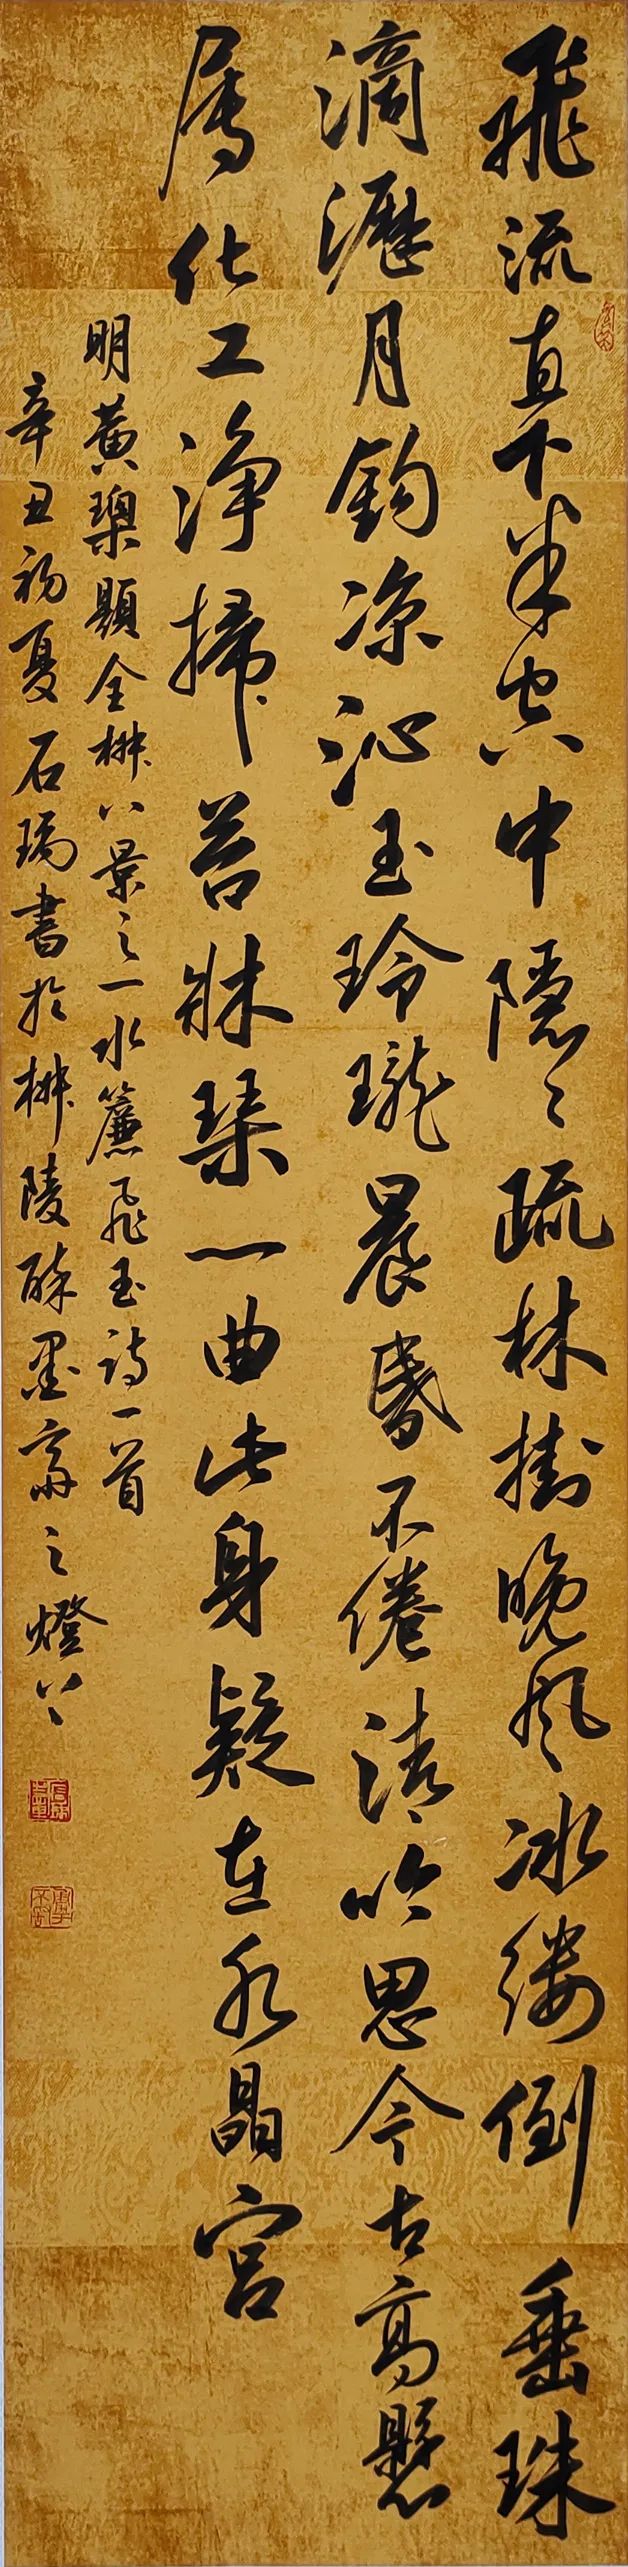 飛流直下半空中隱〻疏林掛晚風冰縷倒垂珠
滴瀝月鉤涼沁玉玲瓏晨昏不倦清吟思今古高懸
屬化工淨掃苔牀琴一曲此身疑在水晶宮
明黃璖題全椒八景之一水簾飛玉詩一首
辛丑初夏石瑀書於椒陵醉墨齋之燈下